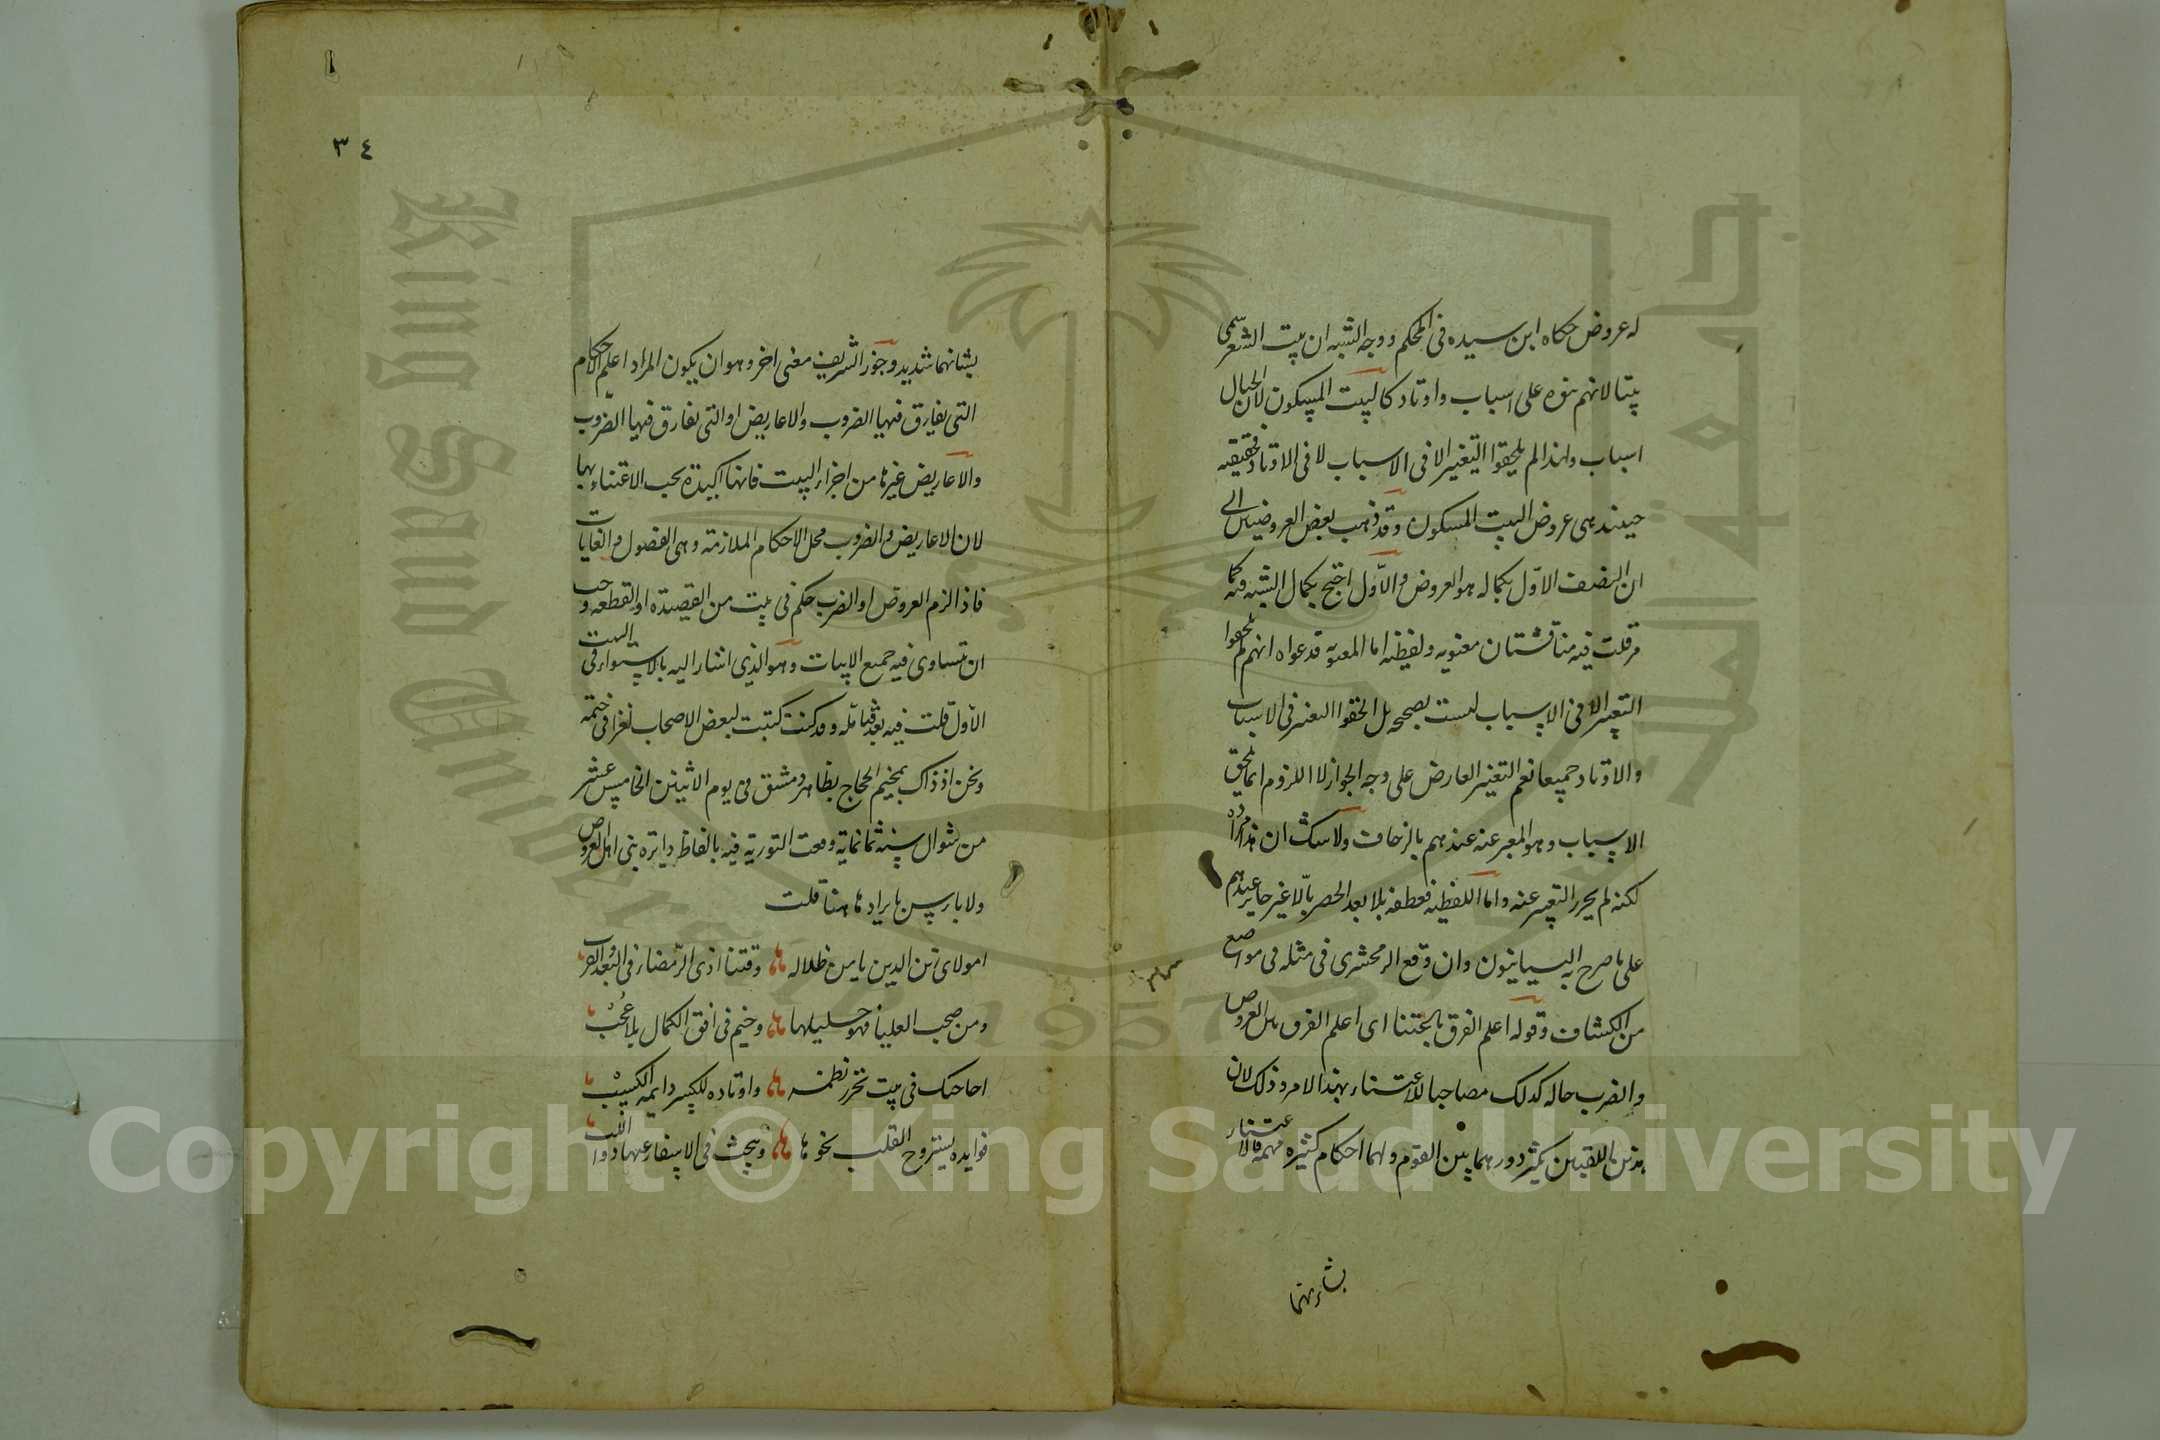 له عروض حكاه ابن سيده في المحكم ووجه الشبه ان بيت الشعر سمى
بيتا لانهم بنوه على اسباب واوتاد كالبيت المسكون لان الحبال
اسباب ولهذا لم يلحقوا التغيير الا في الاسباب لا في الاوتاد
حينئذ هى عروض البيت المسكون وقد ذهب بعض العروضيين الى
ان النصف الاول بكماله هو العروض والاول احتج بكمال الشبه
قلت فيه مناقشتان معنوية ولفظية اما المعنوية فدعواه انهم لم يلحقوا
التغيير الا في الاسباب ليست بصحيحة بل الحقوا التغير في الاسباب
والاوتاد جميعا نعم التغيير العارض على وجه الجواز لا اللزوم انما يلحق
الاسباب وهو المعبر عنه عندهم بالزحاف ولا شك ان هذا مراده
لكنه لم يحرر التعبير عنه واما اللفظية فعطفه بلا بعد الحصر بالا غير جايز عندهم
على ما صرح به البيانيون وان وقع الزمحشرى في مثله في مواضع
من الكشاف وقوله اعلم الفرق باعتنا اى اعلم الفرق بين العروض
والضرب حاله كذلك مصاحبا للاعتناء بهذا الامر وذلك لان
هذين اللقبين يكثر دورهما بين القوم ولهما احكام كثيرة مهمة فالاعتناء
بشانهما
٣٤
بشانهما شديد وجوز الشريف معنى اخر وهو ان يكون المراد اعلم الاحكام
التى يفارق فيها الضروب والاعاريض او التى تفارق فيها الضروب
والاعاريض غيرها من اجزاء البيت فانها اكيدة يجب الاعتناء بها
لان الاعاريض والضروب محل الاحكام الملازمة وهى الفصول والغايات
فاذا لزم العروض او الضرب حكم في بيت من القصيدة او القطعة وجب
ان تتساوى فيه جميع الابيات وهو الذي اشار اليه بالاستواء في البيت
الاول قلت فيه بعد فتامله وقد كنت كتبت لبعض الاصحاب لغزا في خيمة
ونحن اذ ذاك بمخيم الحاج بظاهر دمشق في يوم الاثنين الخامس عشر
من شوال سنة ثمانماية وقعت التورية فيه بالفاظ دايرة بين اهل العروض
ولا باس بايرادها هنا قلت
امولاى زين الدين يا من ظلاله وقتنا اذى الرمضاء في البعد والقرب
ومن صحب العليا فهو خليلها وخيم في افق الكمال بلا عجب
احاجيك في بيت تحرر نظمه واوتاده للكسر دايمة الكسب
فوايده يستروح القلب نحوها ويبحث في الاسفار عنها ذوو اللب